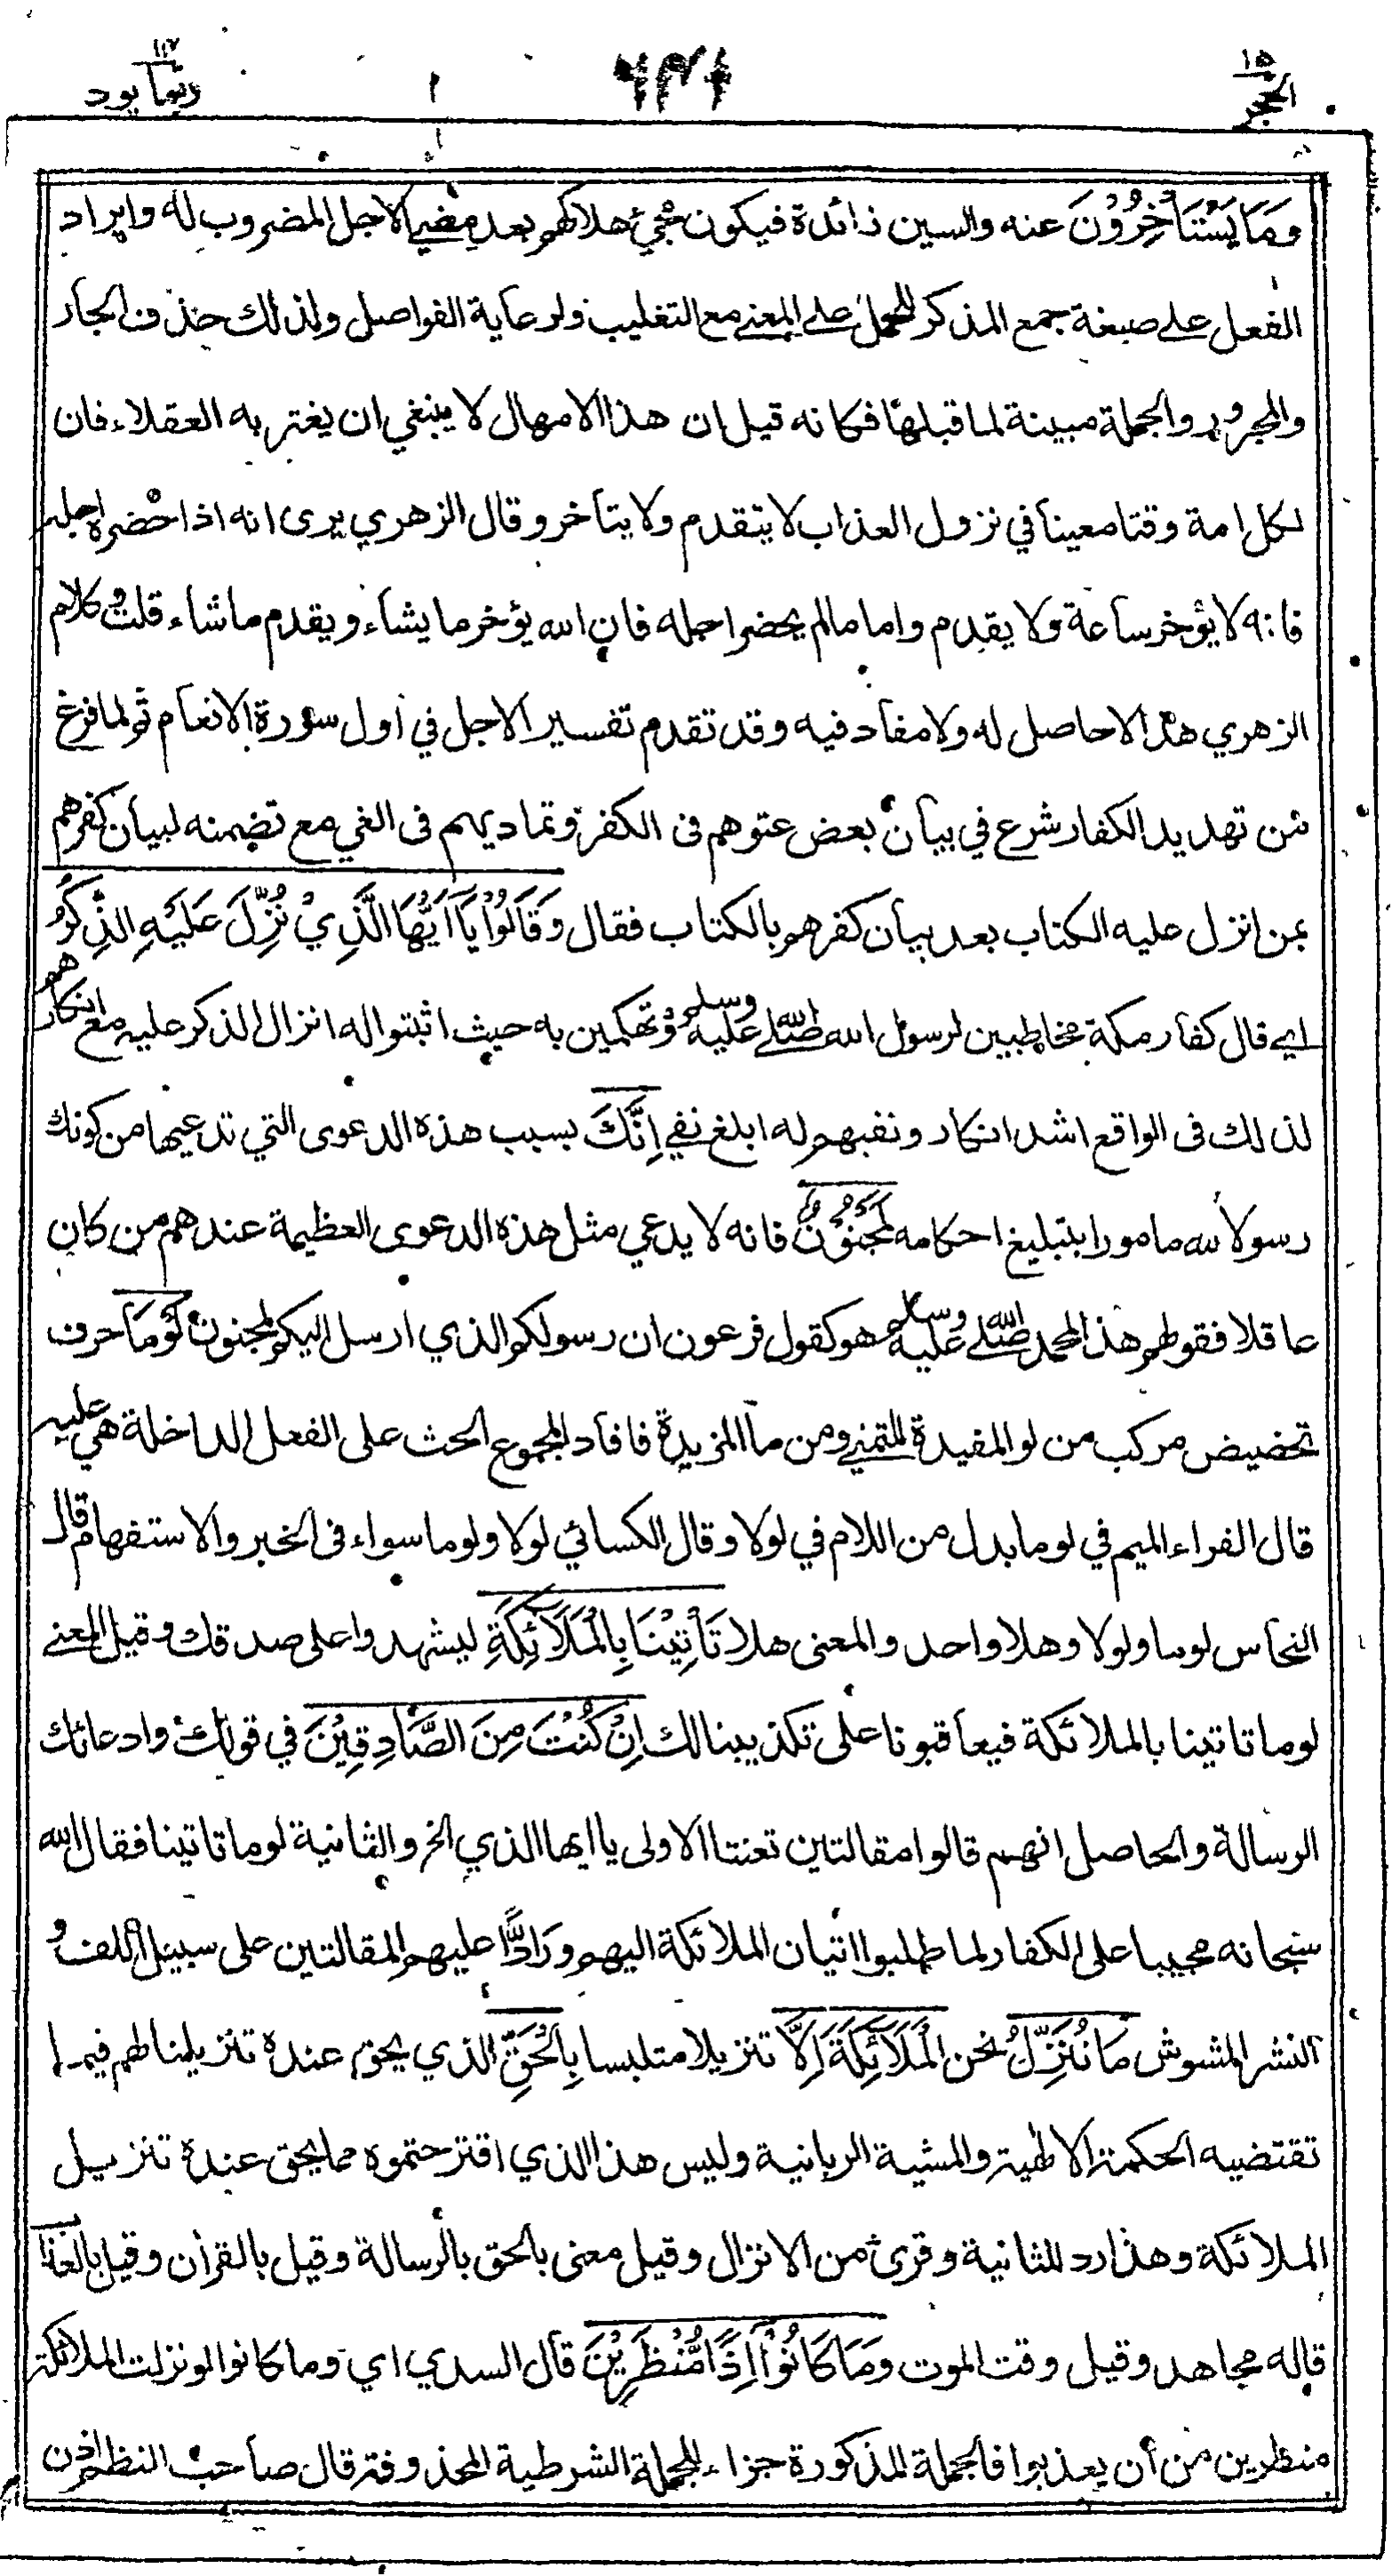 ١٥
الحجر
ربما يود
وَمَا يَسْتَأْخِرُوْنَ عنه والسين زائدة فيكون مجيئ هلاكهم بعد مضي الاجل المضروب له وايراد
الفعل على صيغة جمع المذكر للحمل على المعنى مع التغليب ولرعاية الفواصل ولذلك حذف الجار
والمجرور والجملة مبينة لما قبلها فكانه قيل ان هذا الامهال لا ينبغي ان يغتر به العقلاء فان
لكل امة وقتا معينا في نزول العذاب لا يتقدم ولا يتأخر وقال الزهري يرى انه اذا حضره اجله
فانه لا يؤخر ساعة ولا يقدم واما ما لم يحضر اجله فان الله يؤخر ما يشاء ويقدم ما شاء قلت وكلام
الزهري هذا لا حاصل له ولا مفاد فيه وقد تقدم تفسير الاجل في اول سورة الانعام ثم لما فرغ
من تهديد الكفار شرع في بيان بعض عتوهم فى الكفر وتماديهم فى الغي مع تضمنه لبيان كفرهم
بمن انزل عليه الكتاب بعد بيان كفرهم بالكتاب فقال وَقَالُوْا يَا اَيُّهَا الَّذِيْ نُزِّلَ عَلَيْهِ الذِّكْرُ
اي قال كفار مكة مخاطبين لرسول الله صلى الله عليه وسلم ومتهكمين به حيث اثبتوا له انزال الذكر عليه مع انكارهم
لذلك فى الواقع اشد انكار ونفيهم له ابلغ نفي اِنَّكَ بسبب هذه الدعوى التي تدعيها من كونك
رسولا لله مامورا بتبليغ احكامه لَمَجْنُوْنٌ فانه لا يدعي مثل هذه الدعوى العظيمة عندهم من كان
عاقلا فقولهم هذا لمحمد صلى الله عليه وسلم هو كقول فرعون ان رسولكم الذي ارسل اليكم لمجنون لَوْمَا حرف
تحضيض مركب من لو المفيدة للتمني ومن ما المزيدة فافاد المجموع الحث على الفعل الداخلة هي عليه
قال الفراء الميم في لوما بدل من اللام في لولا وقال الكسائي لولا ولوما سواء فى الخبر والاستفهام قال
النحاس لوما ولولا وهلا واحد والمعنى هلا تَأْتِيْنَا بِالْمَلَائِكَةِ ليشهدوا على صدقك وقيل المعنى
لوما تاتينا بالملائكة فيعاقبونا على تكذيبنا لك اِنْ كُنْتَ مِنَ الصَّادِقِيْنَ في قولك وادعائك
الرسالة والحاصل انهم قالوا مقالتين تعنتا الاولى يا ايها الذي الخ والثانية لوما تاتينا فقال الله
سبحانه مجيبا على الكفار لما طلبوا اتيان الملائكة اليهم ورَادًّا عليهم المقالتين على سبيل اللف و
النشر المشوش مَا نُنَزِّلُ نحن الْمَلَائِكَةَ اِلَّا تنزيلا متلبسا بِالْحَقِّ الذي يحق عنده تنزيلنا لهم فيما
تقتضيه الحكمة الالهية والمشية الربانية وليس هذا الذي اقترحتموه مما يحق عنده تنزيل
الملائكة وهذا رد للثانية وقرئ من الانزال وقيل معنى بالحق بالرسالة وقيل بالقرأن وقيل بالعذا
قاله مجاهد وقيل وقت الموت وَمَا كَانُوْا اِذًا مُّنْظَرِيْنَ قال السدي اي وما كانوا لو نزلت الملائكة
منظرين من أن يعذبوا فالجملة المذكورة جزاء للجملة الشرطية المحذوفة قال صاحب النظم اذن